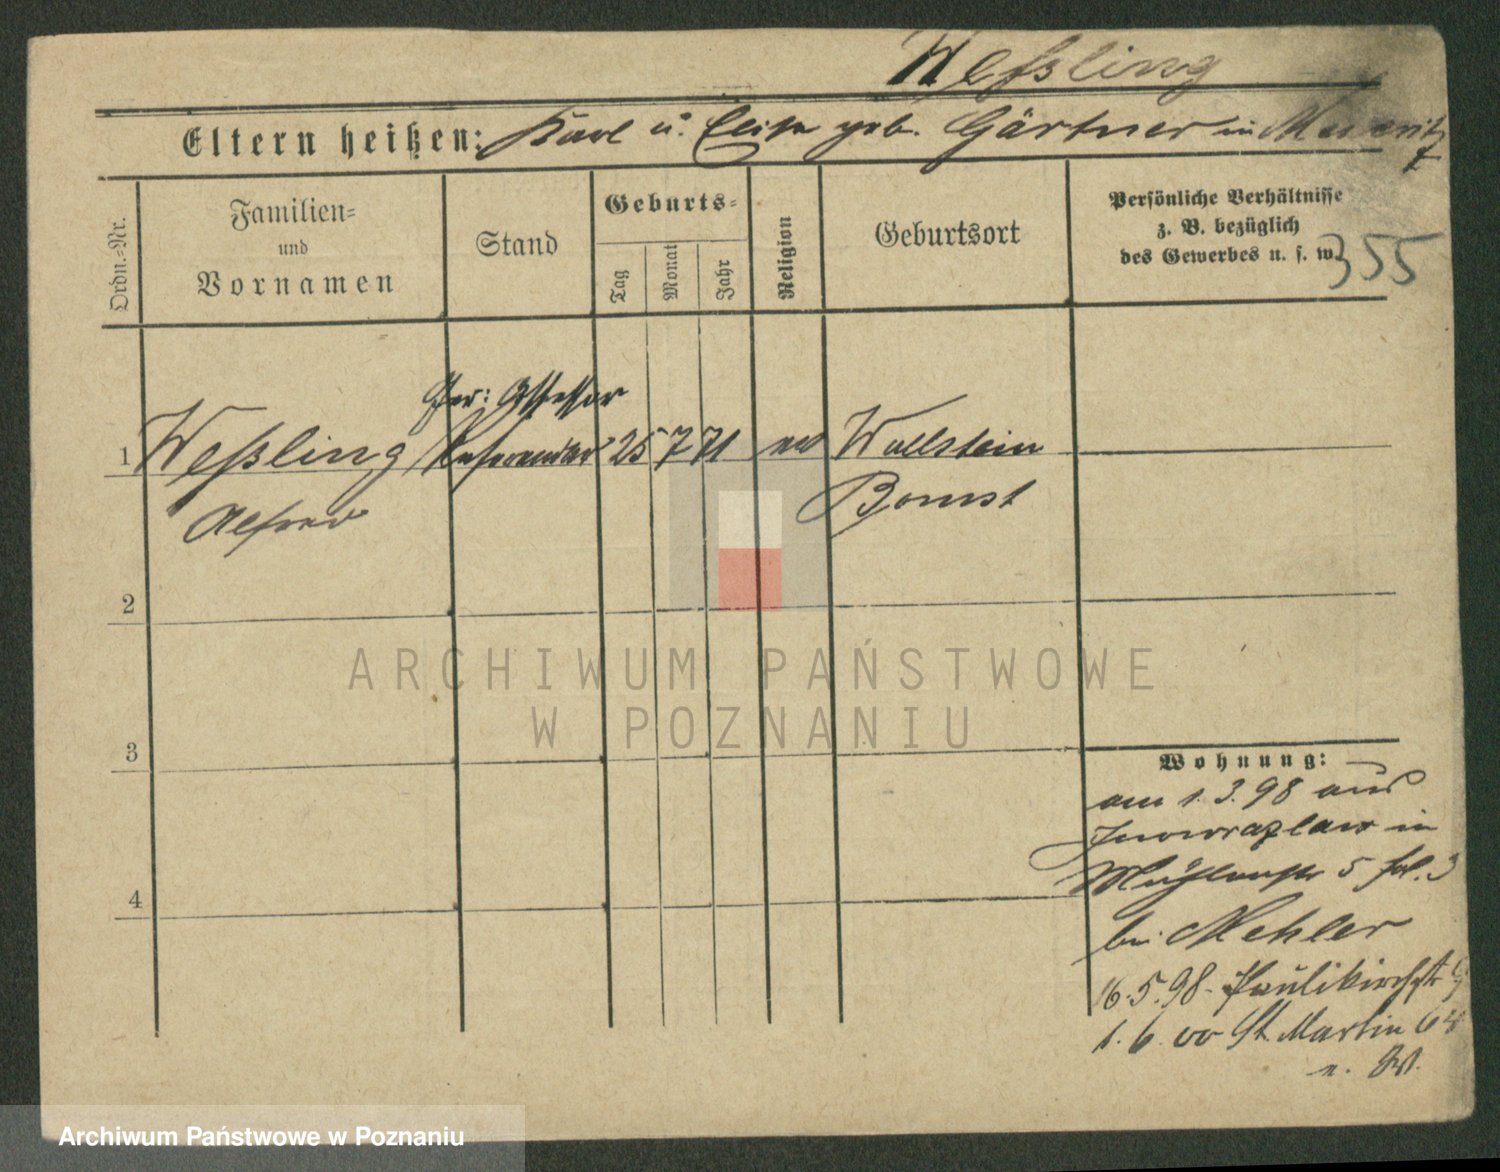 Weßling
Eltern heißen: Karl u. Elise geb. Gärtner in Meseritz
Ordn.-Nr.
Familien-
und
Vornamen
Stand
Geburts-
Tag
Monat
Jahr
Religion
Geburtsort
Persönliche Verhältnisse
z. B. bezüglich
des Gewerbes u. s. w.
355
Ger: Assessor
1 Weßling Referendar 25 7 71 ev Wollstein
Alfred Bomst
2
3
4
ARCHIWUM PAŃSTWOWE
W POZNANIU
Wohnung:
am 1.3.98 aus
Inowrazlaw in
Mühlenstr 5
bei Mehler
16.5.98. Paulikirchstr 9
1.6.00 St. Martin 64
Archiwum Państwowe w Poznaniu